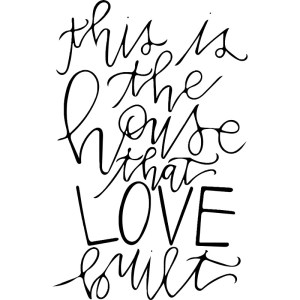 this is
the
house
that
LOVE
built